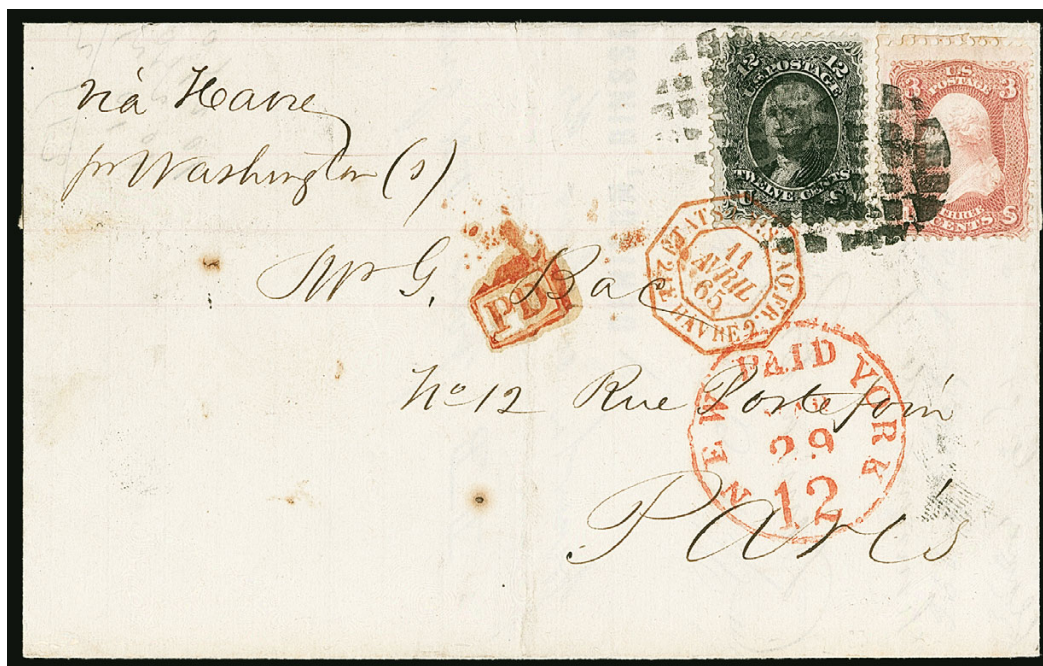 via Havre
pr Washington (s)
12 12
U.S. POSTAGE
TWELVE CENTS
U S
3 3
U.S.
POSTAGE
THREE
CENTS
U S
ETATS-UNIS
2 HAVRE 2
11
AVRIL
65
PD
Mr G. Bac
No 12 Rue Portefoin
Paris
NEW PAID YORK
29
12